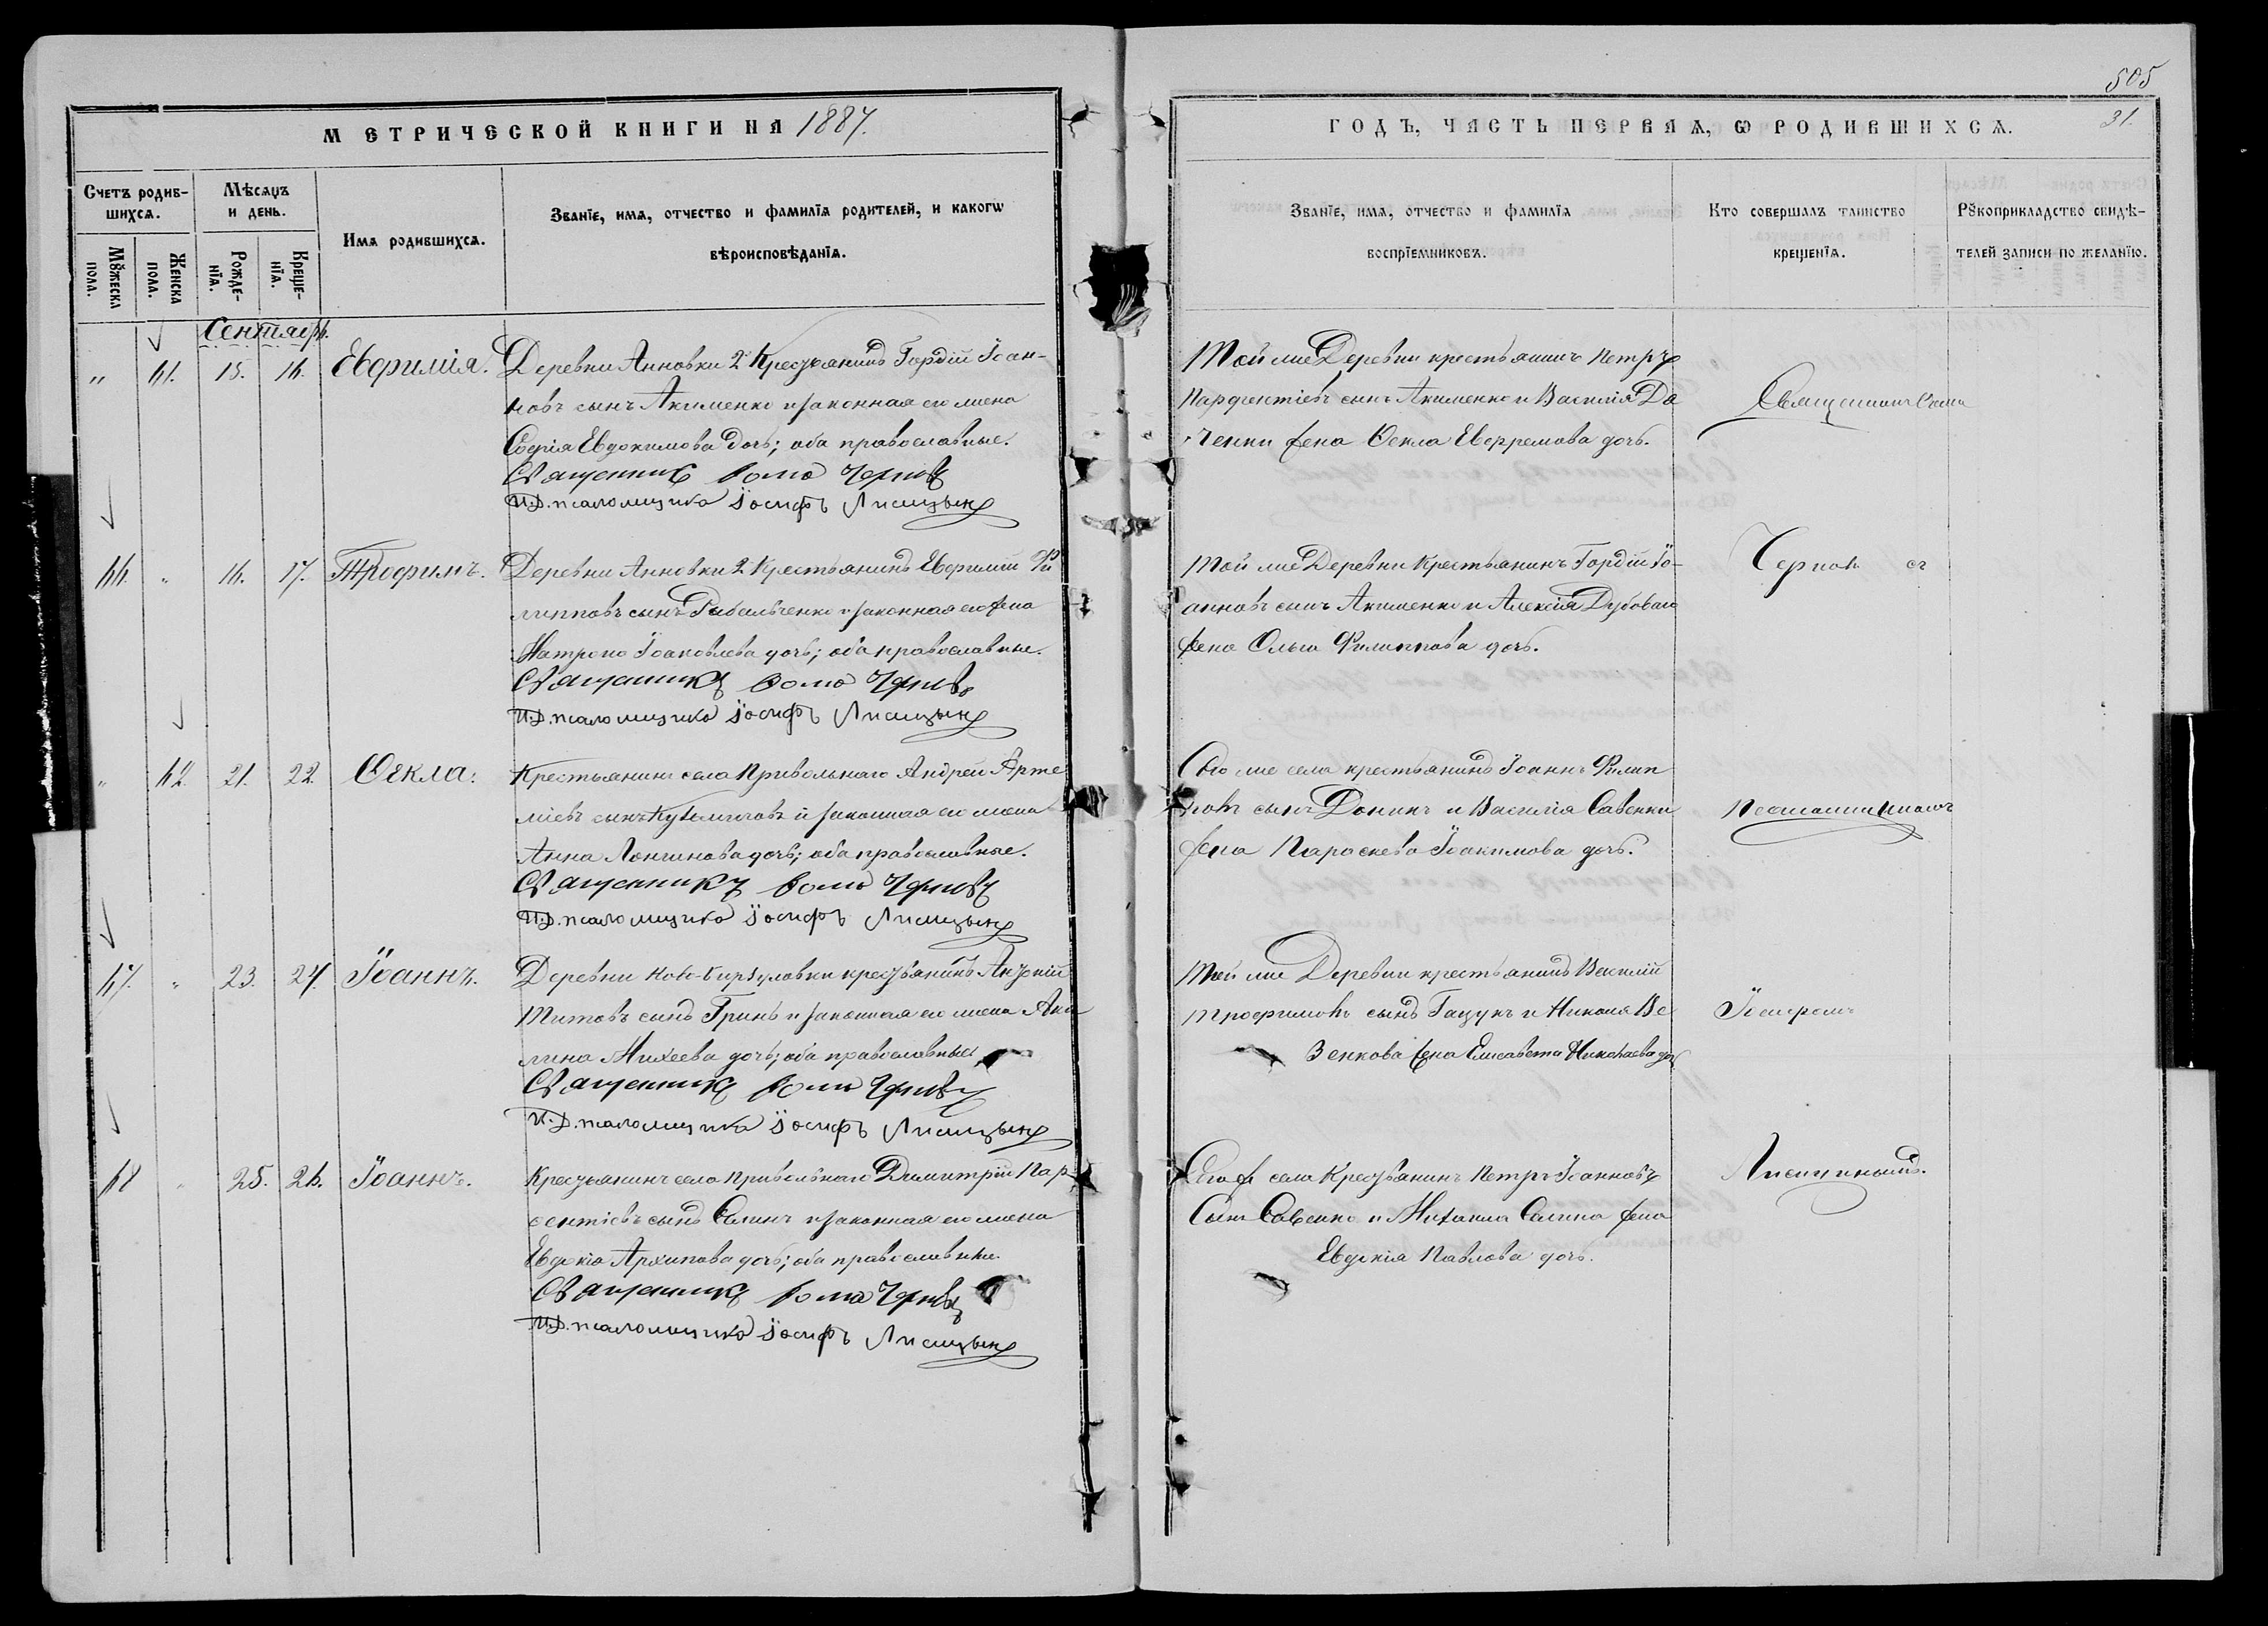 505
31.
МЕТРИЧЕСКОЙ КНИГИ НА 1887.
ГОДЪ, ЧАСТЬ ПЕРВАЯ, Ѡ РОДИВШИХСѦ.
Счетъ родив-
шихсѧ.
Мѣсяцъ
и день.
Имя родившихсѧ.
Званїе, имѧ, отчество и фамилїа родителей, и какогѡ
вѣроисповѣданїа.
Мꙋжеска
пола.
Женска
пола.
Рожде-
нїѧ.
Креще-
нїѧ.
Званїе, имѧ, отчество и фамилїа
воспрїемниковъ.
Кто совершалъ таинство
крещенїѧ.
Рꙋкоприкладство свидѣ-
телей записи по желанїю.
Сентябрь.
„ 61. 15. 16. Евфимія. Деревни Анновки 2й Крестьянинъ Гордій Іоан-
новъ сынъ Акименко и законная его жена
Софія Евдокимова дочь; оба православные.
Священникъ Ѳома Черновъ
И.Д. псаломщика Іосифъ Лисицынъ
Той же Деревни крестьянинъ Петръ
Парфентіевъ сынъ Акименко и Василія Да
ченки жена Ѳекла Ефремова дочь.
Священникъ Ѳома
66. „ 16. 17. Трофимъ. Деревни Анновки 2й Крестьянинъ Евфимій Фи
липповъ сынъ Рибальченко и законная его жена
Матрона Іоаковлева дочь; оба православные.
Священникъ Ѳома Черновъ
И.Д. псаломщика Іосифъ Лисицынъ
Той же Деревни Крестьянинъ Гордій Іо-
анновъ сынъ Акименко и Алексія Дубоваго
жена Ольга Филиппова дочь.
Черновъ съ
„ 62. 21. 22. Ѳекла. Крестьянинъ села Привольнаго Андрей Арте
міевъ сынъ и законная его жена
Анна Лонгинова дочь; оба православные.
Священникъ Ѳома Черновъ
И.Д. псаломщика Іосифъ Лисицынъ
Того же села крестьянинъ Іоаннъ Филип
повъ сынъ Донинъ и Василія Савенки
жена Параскева Іоакимова дочь.
Псаломщикомъ
67. „ 23. 24. Іоаннъ. Деревни Ново-Бирзуловки крестьянинъ
Титовъ сынъ Гринь и законная его жена Аку
лина Михеева дочь; оба православные
Священникъ Ѳома Черновъ
И.Д. псаломщика Іосифъ Лисицынъ
Той же Деревни крестьянинъ Василій
Трофимовъ сынъ Гацукъ и Николая Ве
зенкова жена Елисавета Николаева дочь
Іосифомъ
68 „ 25. 26. Іоаннъ. Крестьянинъ села Привольнаго Димитрій Пар
фентіевъ сынъ Салинъ и законная его жена
Евдокія Архипова дочь; оба православные.
Священникъ Ѳома Черновъ
И.Д. псаломщика Іосифъ Лисицынъ
Того же села Крестьянинъ Петръ Іоанновъ
Сынъ Савенко и Михаила Салина жена
Евдокія Павлова дочь.
Лисицинымъ.